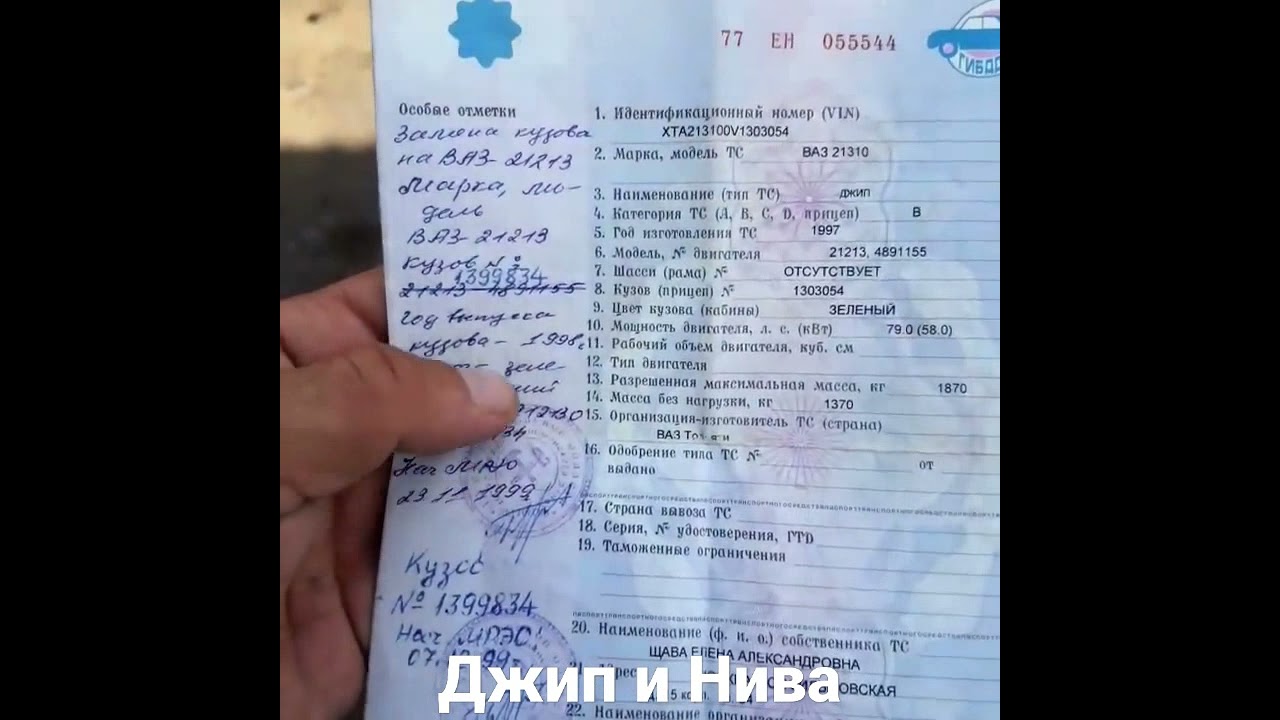 77 ЕН 055544
ГИБДД
Особые отметки
Замена кузова
на ВАЗ-21213
Марка, мо-
дель
ВАЗ-21213
Кузов №
1399834
21213 4891155
Год выпуска
кузова - 1998г
зеле-
Нач МРЭО
23 11 1999
Кузов
№ 1399834
Нач МРЭО
1. Идентификационный номер (VIN)
XTA213100V1303054
2. Марка, модель ТС ВАЗ 21310
3. Наименование (тип ТС) ДЖИП
4. Категория ТС (A, B, C, D, прицеп) B
5. Год изготовления ТС 1997
6. Модель, № двигателя 21213, 4891155
7. Шасси (рама) № ОТСУТСТВУЕТ
8. Кузов (прицеп) № 1303054
9. Цвет кузова (кабины) ЗЕЛЕНЫЙ
10. Мощность двигателя, л. с. (кВт) 79.0 (58.0)
11. Рабочий объем двигателя, куб. см
12. Тип двигателя
13. Разрешенная максимальная масса, кг 1870
14. Масса без нагрузки, кг 1370
15. Организация-изготовитель ТС (страна)
ВАЗ
16. Одобрение типа ТС № от
выдано
17. Страна вывоза ТС
18. Серия, № удостоверения, ГТД
19. Таможенные ограничения
20. Наименование (ф. и. о.) собственника ТС
ЩАВА ЕЛЕНА АЛЕКСАНДРОВНА
22. Наименование
Джип и Нива